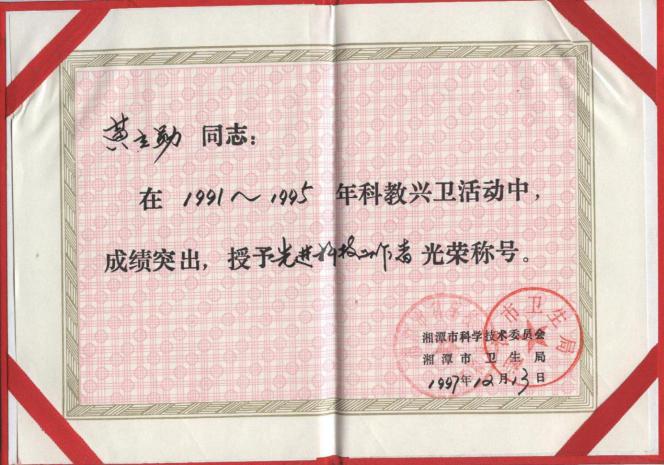 黄立勋 同志：
在 1991～1995 年科教兴卫活动中，
成绩突出，授予先进科技工作者光荣称号。
湘潭市科学技术委员会
湘潭市卫生局
1997年12月13日
市卫生局